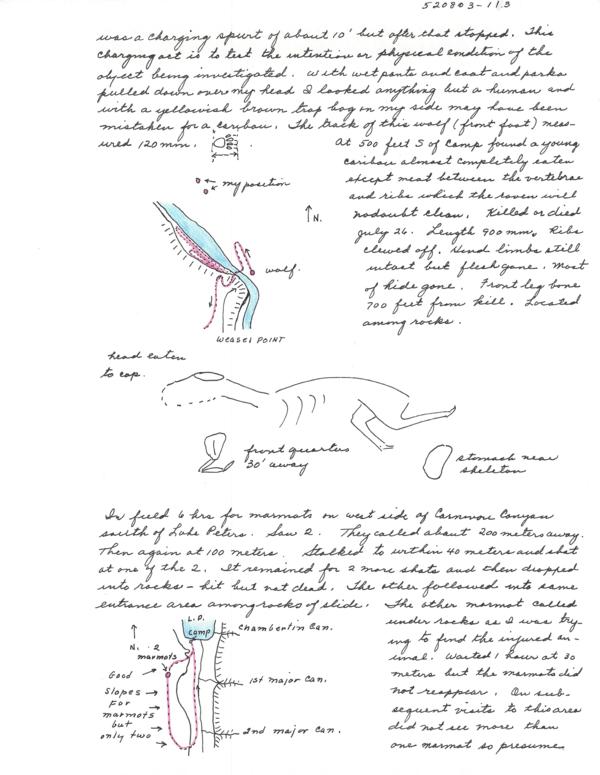 520803-113
was a charging spurt of about 10' but after that stopped. This
charging act is to test the intention or physical condition of the
object being investigated. With wet pants and coat and parka
pulled down over my head I looked anything but a human and
with a yellowish brown trap bag on my side may have been
mistaken for a caribou. The track of this wolf (front foot) meas-
ured 120 mm.
At 500 feet S of Camp found a young
caribou almost completely eaten
except meat between the vertebrae
and ribs which the raven will
nodoubt clean. Killed or died
July 26. Length 900 mm. Ribs
chewed off. Hind limbs still
intact but flesh gone. Most
of hide gone. Front leg bone
700 feet from kill. Located
among rocks.
my position
N.
wolf.
WEASEL POINT
head eaten
to cap.
front quarters
30' away
stomach near
skeleton
In field 6 hrs for marmots on west side of Carnivore Canyon
south of Lake Peters. Saw 2. They called about 200 meters away.
Then again at 100 meters. Stalked to within 40 meters and shot
at one of the 2. It remained for 2 more shots and then dropped
into rocks - hit but not dead. The other followed into same
entrance area among rocks of slide. The other marmot called
under rocks as I was try-
ing to find the injured an-
imal. Waited 1 hour at 30
meters but the marmots did
not reappear. On sub-
sequent visits to this area
did not see more than
one marmot so presume
L.P.
camp
Chamberlin Can.
N.
2
marmots
Good
slopes
for
marmots
but
only two
1st major can.
2nd major can.